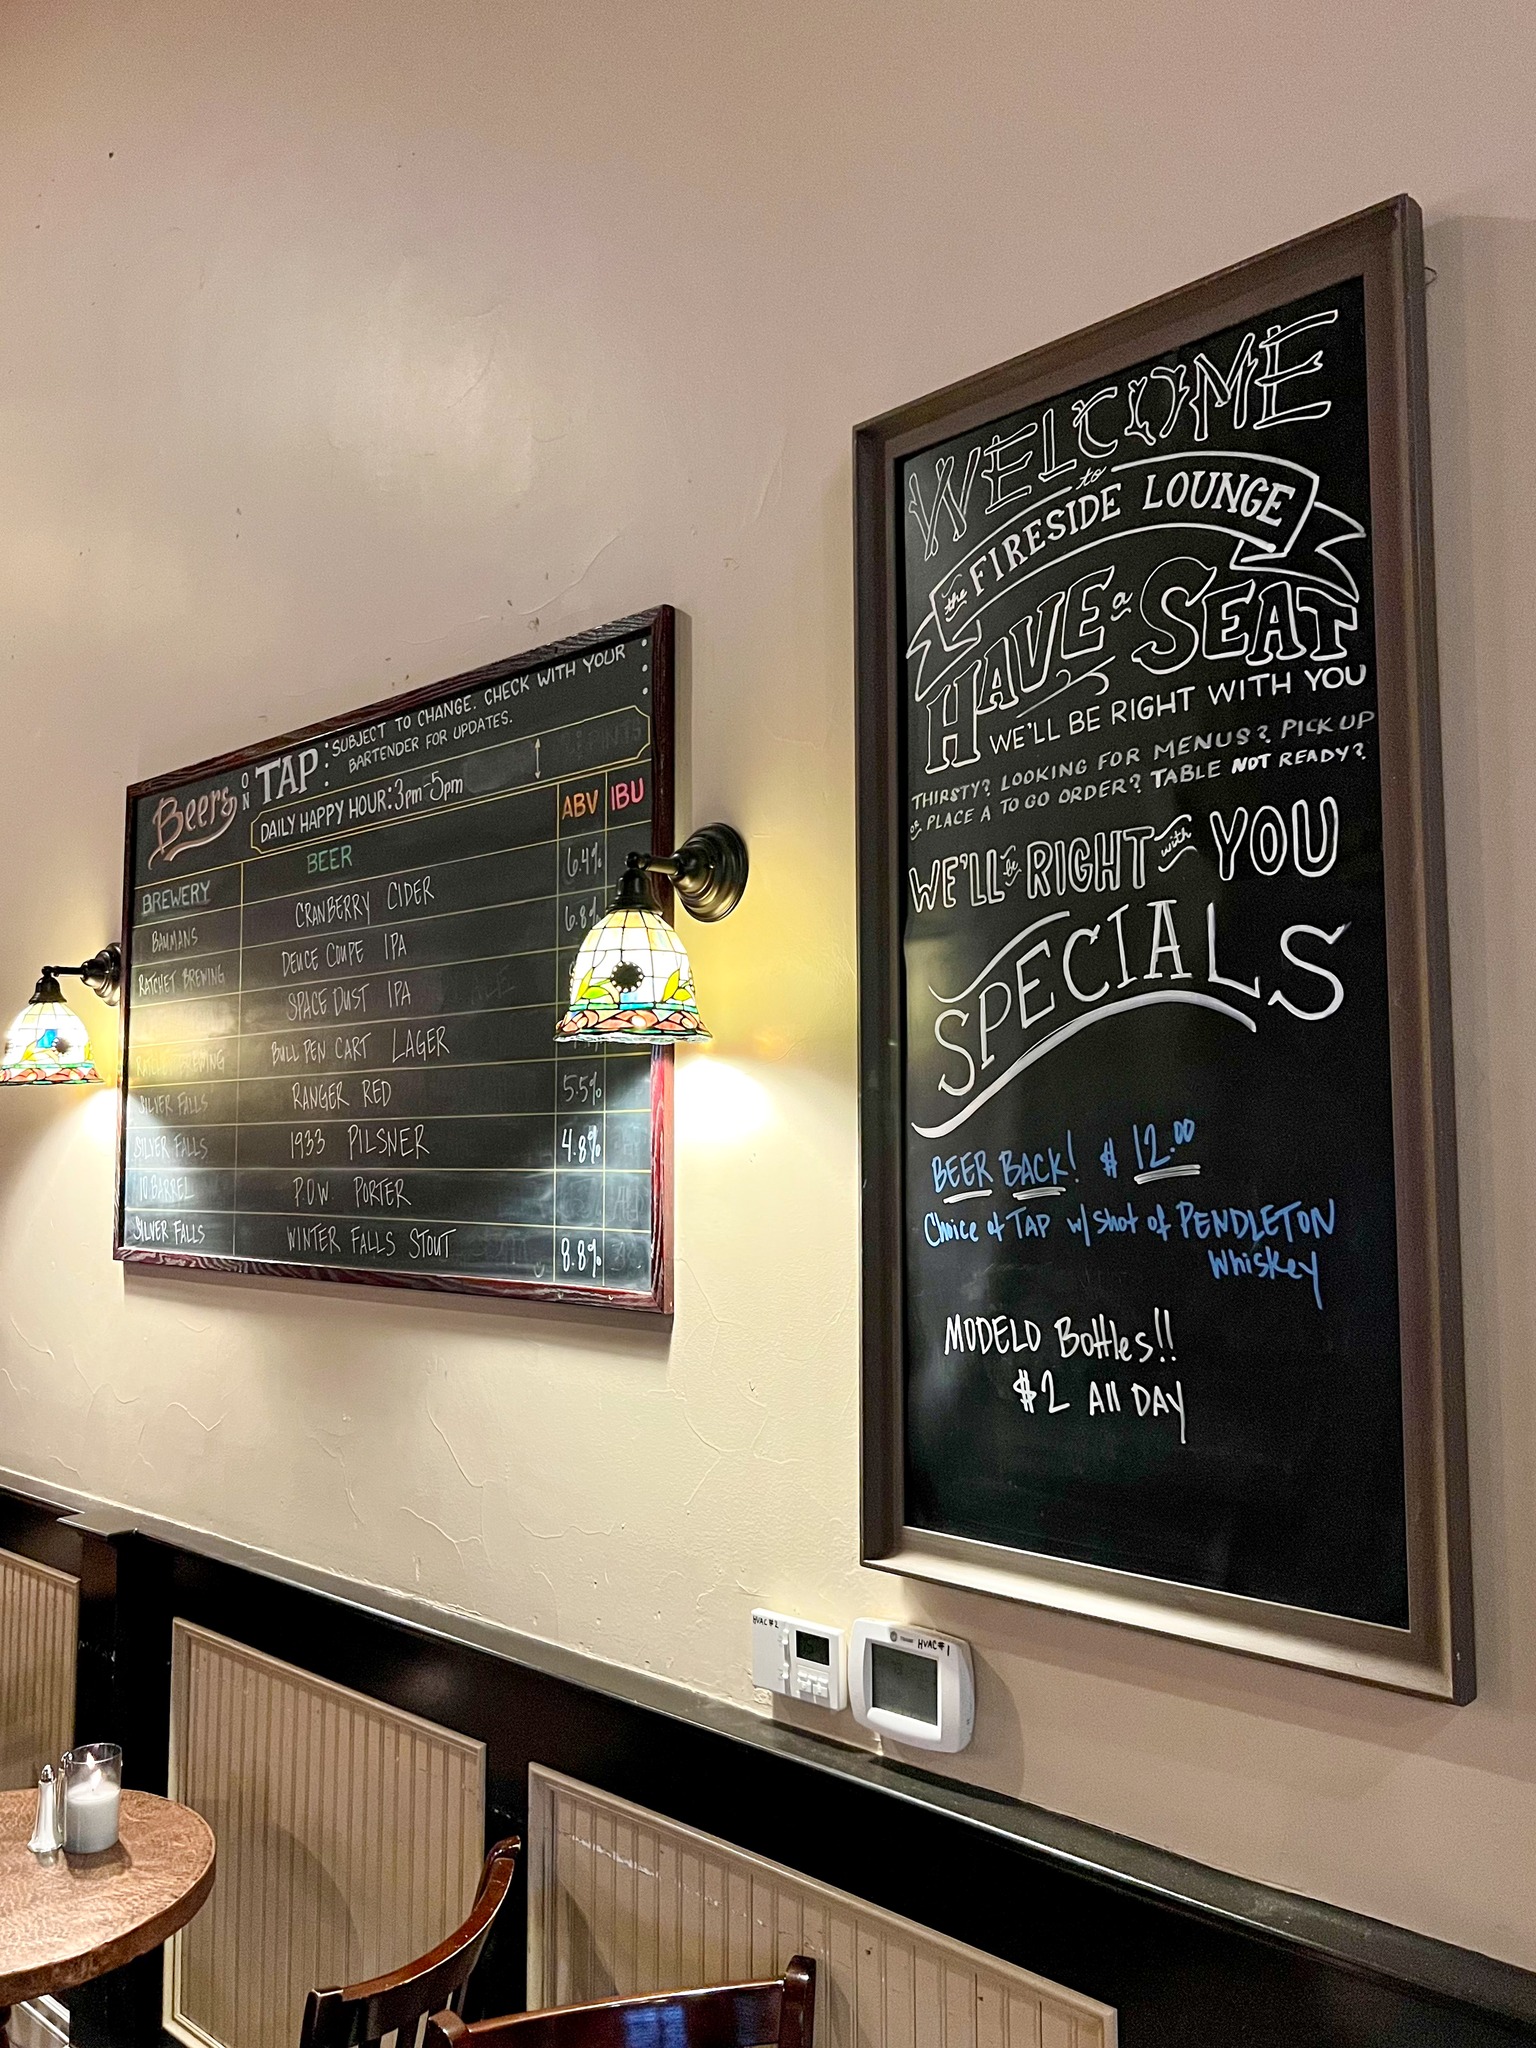 Beers ON TAP:
SUBJECT TO CHANGE. CHECK WITH YOUR
BARTENDER FOR UPDATES.
DAILY HAPPY HOUR: 3pm-5pm
BREWERY BEER ABV IBU
BAUMANS CRANBERRY CIDER 6.4%
RATCHET BREWING DEUCE COUPE IPA 6.8%
SPACE DUST IPA
RATCHET BREWING BULL PEN CART LAGER
SILVER FALLS RANGER RED 5.5%
SILVER FALLS 1933 PILSNER 4.8%
10 BARREL P.O.W. PORTER
SILVER FALLS WINTER FALLS STOUT 8.8%
WELCOME
to
the FIRESIDE LOUNGE
HAVE a SEAT
WE'LL BE RIGHT WITH YOU
THIRSTY? LOOKING FOR MENUS? PICK UP
OR PLACE A TO GO ORDER? TABLE NOT READY?
WE'LL be RIGHT with YOU
SPECIALS
BEER BACK! $12.00
Choice of TAP w/ shot of PENDLETON
Whiskey
MODELO Bottles!!
$2 All DAY
HVAC #2
HVAC #1